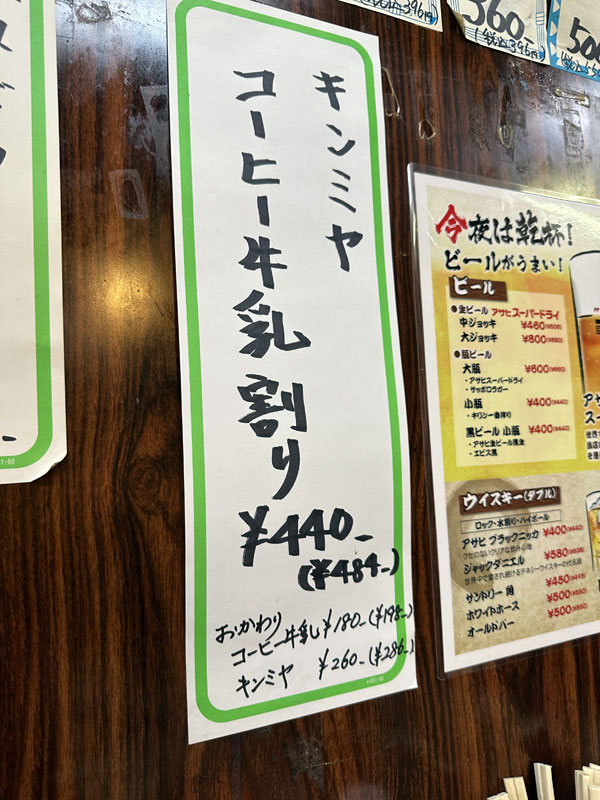 キンミヤ
コーヒー牛乳割り
¥440-
(¥484-)
おかわり
コーヒー牛乳 ¥180-(¥198-)
キンミヤ ¥260-(¥286-)
360
税込396円
500
今夜は乾杯!
ビールがうまい!
ビール
●生ビール アサヒスーパードライ
中ジョッキ ¥460(¥506)
大ジョッキ ¥800(¥880)
●瓶ビール
大瓶 ¥600(¥660)
・アサヒスーパードライ
・サッポロラガー
小瓶 ¥400(¥440)
・キリン一番搾り
黒ビール 小瓶 ¥400(¥440)
・アサヒ生ビール黒生
・エビス黒
ウイスキー(ダブル)
ロック・水割り・ハイボール
アサヒ ブラックニッカ ¥400(¥440)
クセのないクリアな飲み心地
ジャックダニエル ¥580(¥638)
世界中で愛され続けるテネシーウイスキーの代名詞
サントリー 角 ¥450(¥495)
ホワイトホース ¥500(¥550)
オールドパー ¥500(¥550)